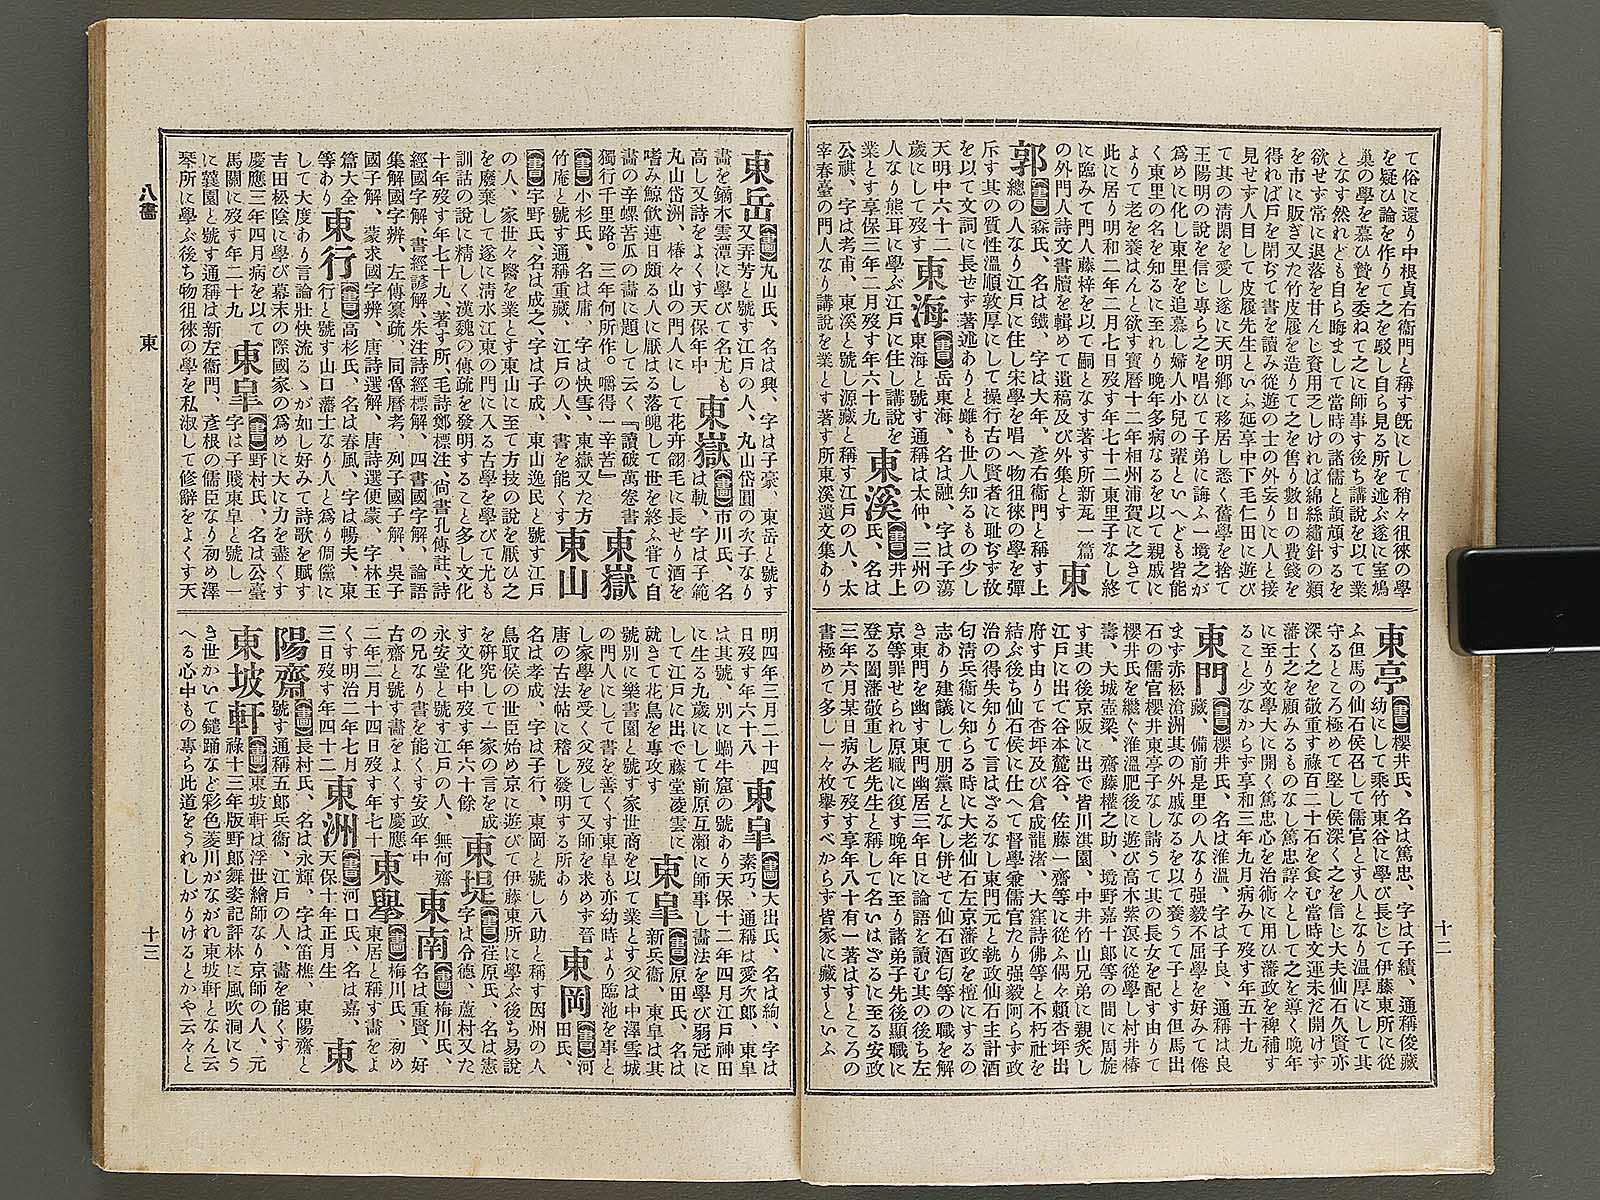 て俗に還り中根貞右衞門と稱す既にして稍々徂徠の學
を疑ひ論を作りて之を駁し自ら見る所を述ぶ遂に室鳩
巢の學を慕ひ贄を委ねて之に師事す後ち講說を以て業
となす然れども自ら晦まして當時の諸儒と頡頏するを
欲せず常に退落を甘んじ資用乏しければ綿絲繡針の類
を市に販ぎ又た竹皮履を造りて之を售り數日の費錢を
得れば戶を閉ぢて書を讀み從遊の士の外妄りに人と接
見せず人目して皮履先生といふ延享中下毛仁田に遊び
て其の淸閑を愛し遂に天明鄕に移居し悉く舊學を捨て
王陽明の說を信じ專ら之を唱ひて子弟に誨ふ一境之が
爲めに化し東里を追慕し婦人小兒の輩といへども皆能
く東里の名を知るに至れり晚年多病なるを以て親戚に
よりて老を養はんと欲す寶曆十一年相州浦賀に之きて
此に居り明和二年二月七日歿す年七十二東里子なし終
に臨みて門人藤梓を以て嗣となす著す所新瓦一篇
の外門人詩文書牘を輯めて遺稿及び外集とす 東
郭(書)森氏、名は鐵、字は大年、彥右衞門と稱す上
總の人なり江戶に住し宋學を唱へ物徂徠の學を彈
斥す其の質性溫順敦厚にして操行古の賢者に耻ぢず故
を以て文詞に長せず著述ありと雖も世人知るもの少し
天明中六十二歲にして歿す 東海(書)岳東海、名は融、字は子蕩
東海と號す通稱は太仲、三州の
人なり熊耳に學ぶ江戶に住し講說を
業とす享保三年二月歿す年六十九 東溪(書)井上氏、名は
公祺、字は考甫、東溪と號し源藏と稱す江戶の人、太
宰春臺の門人なり講說を業とす著す所東溪遺文集あり
東亭(書)櫻井氏、名は篤忠、字は子績、通稱俊藏
幼にして乘竹東谷に學び長じて伊藤東所に從
ふ但馬の仙石侯召して儒官とす人となり溫厚にして其
守るところ極めて堅し侯深く之を信じ大夫仙石久賢亦
深く之を敬重す祿百二十石を食む當時文運未だ開けず
藩士之を顧みるものなし篤忠諄々として之を導く晚年
に至り文學大に開く篤忠心を治術に用ひ藩政を裨補す
ること少なからず享和三年九月病みて歿す年五十九
東門(書)櫻井氏、名は淮溫、字は子良、通稱は良
藏、備前是里の人なり强毅不屈學を好みて倦
まず赤松滄洲其の外戚なるを以て養うて子とす但馬出
石の儒官櫻井東亭子なし請うて其の長女を配す由りて
櫻井氏を繼ぐ淮溫肥後に遊び高木紫溟に從學し村井椿
壽、大城壺梁、齋藤權之助、境野嘉十郞等の間に周旋
す其の後京阪に出で皆川淇園、中井竹山兄弟に親炙し
江戶に出で谷本麓谷、佐藤一齋等に從ふ偶々賴杏坪出
府す由りて杏坪及び倉成龍渚、大窪詩佛等と不朽社を
結ぶ後ち仙石侯に仕へて督學兼儒官たり强毅阿らず政
治の得失知りて言はざるなし東門元と執政仙石主計酒
匂淸兵衞に知らる時に大老仙石左京藩政を檀にするの
志あり建議して朋黨となし併せて仙石酒匂等の職を解
き東門を幽す東門幽居三年日に論語を讀む其の後ち左
京等罪せられ原職に復す晚年に至り諸弟子先後顯職に
登る闔藩敬重し老先生と稱して名いはざるに至る安政
三年六月某日病みて歿す享年八十有一著はすところの
書極めて多し一々枚擧すべからず皆家に藏すといふ
十二
東岳(書畫)丸山氏、名は興、字は子豪、東岳と號す
又弄芳と號す江戶の人、丸山岱圓の次子なり
畫を鏑木雲潭に學びて名尤も
高し又詩をよくす天保年中 東嶽(書畫)市川氏、名
は軌、字は子範
丸山岱洲、椿々山の門人にして花卉翎毛に長せり酒を
嗜み鯨飮連日頗る人に厭はる落魄して世を終ふ甞て自
畫の辛螺苦瓜の畫に題して云く『讀破萬卷書
獨行千里路。三年何所作。嚼得一辛苦』 東嶽
(書畫)小杉氏、名は庸、字は快雪、東嶽又た方
竹庵と號す通稱重藏、江戶の人、書を能くす 東山
(書)宇野氏、名は成之、字は子成、東山逸民と號す江戶
の人、家世々醫を業とす東山に至て方技の說を厭ひ之
を廢棄して遂に淸水江東の門に入る古學を學びて尤も
訓詁の說に精しく漢魏の傳疏を發明すること多し文化
十年歿す年七十九、著す所、毛詩鄭標注、尙書孔傳註、詩
經國字解、書經諺解、朱注詩經標解、四書國字解、論語
集解國字辨、左傳纂疏、同魯曆考、列子國子解、吳子
國子解、蒙求國字辨、唐詩選解、唐詩選便蒙、字林玉
篇大全
等あり 東行(書)高杉氏、名は春風、字は暢夫、東
行と號す山口藩士なり人と爲り倜儻に
して大度あり言論壯快流るゝが如し好みて詩歌を賦す
吉田松陰に學び幕末の際國家の爲めに大に力を盡くす
慶應三年四月病を以て
馬關に歿す年二十九 東皐(書)野村氏、名は公臺
字は子賤東皐と號し一
に蘘園と號す通稱は新左衞門、彥根の儒臣なり初め澤
琴所に學ぶ後ち物徂徠の學を私淑して修辭をよくす天
明四年三月二十四
日歿す年六十八 東皐(書畫)大出氏、名は絢、字は
素巧、通稱は愛次郞、東皐
は其號、別に蝸牛窟の號あり天保十二年四月江戶神田
に生る九歲にして前原互瀨に師事し畫法を學び弱冠に
して江戶に出で藤堂凌雲に
就きて花鳥を專攻す 東皐(書)原田氏、名は
新兵衞、東皐は其
號別に樂書園と號す家世商を以て業とす父は中澤雪城
の門人にして書を善くす東皐も亦幼時より臨池を事と
し家學を受く父歿して又師を求めず晉
唐の古法帖に稽し發明する所あり 東岡(書)河
田氏、
名は孝成、字は子行、東岡と號し八助と稱す因州の人
鳥取侯の世臣始め京に遊びて伊藤東所に學ぶ後ち易說
を研究して一家の言を成
す文化中歿す年六十餘 東堤(書)荏原氏、名は憲
字は令德、蘆村又た
永安堂と號す江戶の人、無何齋
の兄なり書を能くす安政年中 東南(書畫)梅川氏、
名は重賢、好
古齋と號す書をよくす慶應
二年二月十四日歿す年七十 東擧(書畫)梅川氏、初め
東居と稱す書をよ
くす明治二年七月
三日歿す年四十二 東洲(書)河口氏、名は嘉、
天保十年正月生 東
陽齋(書畫)長村氏、名は永輝、字は笛樵、東陽齋と
號す通稱五郞兵衞、江戶の人、畫を能くす
東坡軒(書畫)東坡軒は浮世繪師なり京師の人、元
祿十三年版野郞舞姿記評林に風吹洞にう
き世かいて鑓踊など彩色菱川がながれ東坡軒となん云
へる心中もの專ら此道をうれしがりけるとかや云々と
八畫 東 十三